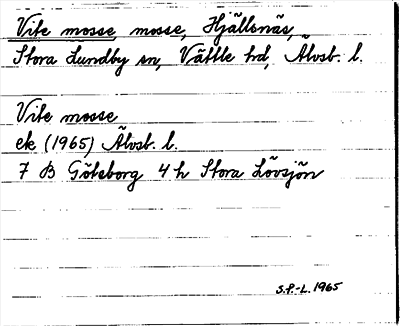 Vite mosse, mosse, Hjällsnäs,
Stora Lundby sn, Vättle hd, Älvsb. l.
Vite mosse
ek (1965) Älvsb. l.
7 B Göteborg 4 h Stora Lövsjön
S.P.-L. 1965